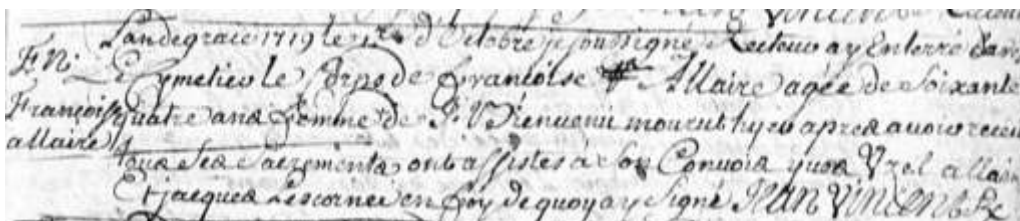 Landegrace 1719 le 1re d'octobre je soussigné Recteur ay Enterré dans
EN. Le Cymetiere le Corps de francoise Allaire agée de soixante
Françoise quatre ans femme de J. Bienvenu mourut hyer apres avoir receu
allaire tous ses sacrements ont assistes a son Convois yves Uzel allaire
Et jacques Lescornec en foy de quoy ay signé JEAN VINCENT Rec